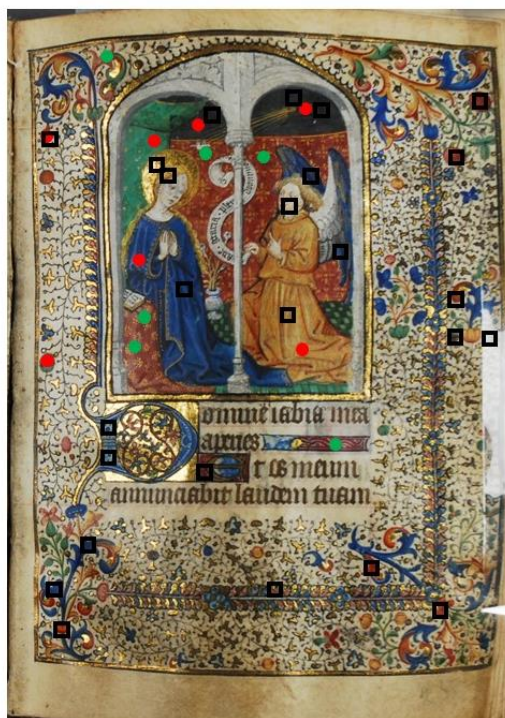 aue gracia
Domine labia mea
aperies
Et os meum
annunciabit laudem tuam